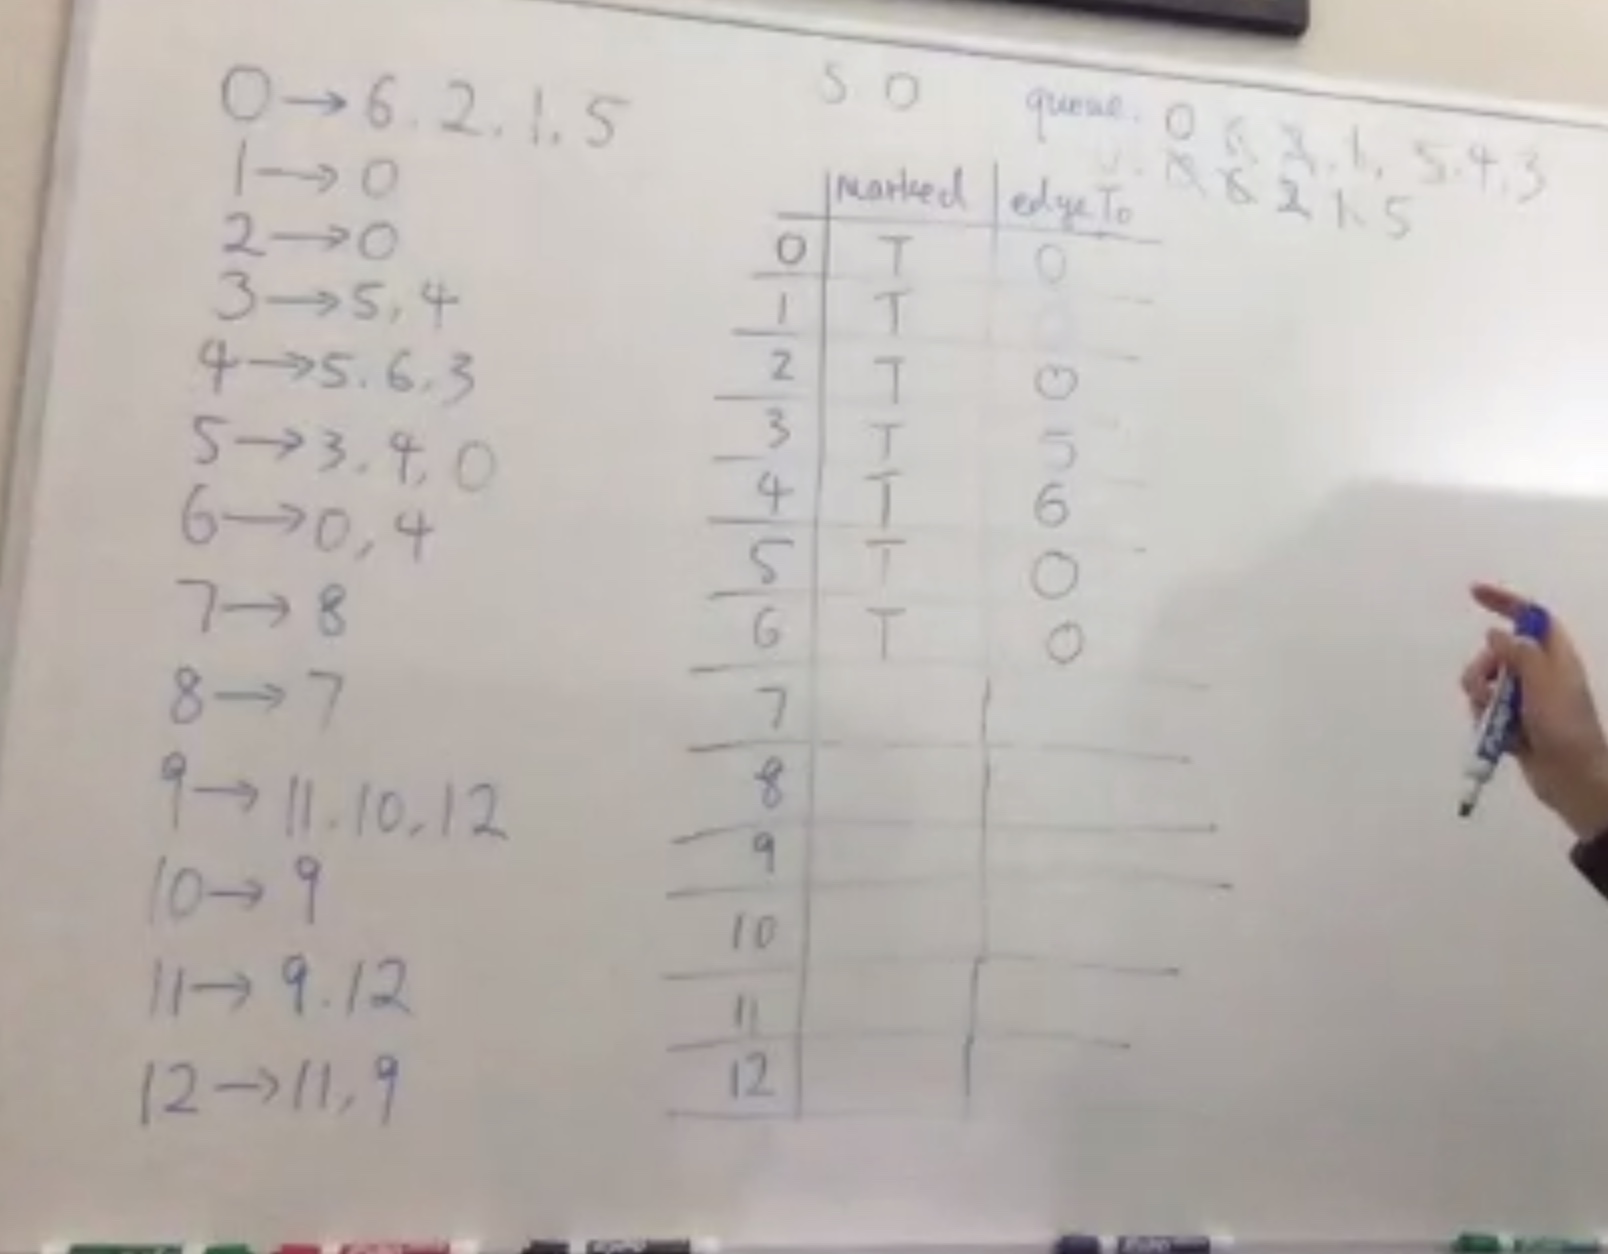 0→6.2.1.5
1→0
2→0
3→5,4
4→5.6.3
5→3.4,0
6→0,4
7→8
8→7
9→11.10,12
10→9
11→9.12
12→11,9
S 0
queue. 0 6 2.1, 5.4,3
v. 0 6 2 1. 5
marked edgeTo
0 T 0
1 T
2 T 0
3 T 5
4 T 6
5 T 0
6 T 0
7
8
9
10
11
12